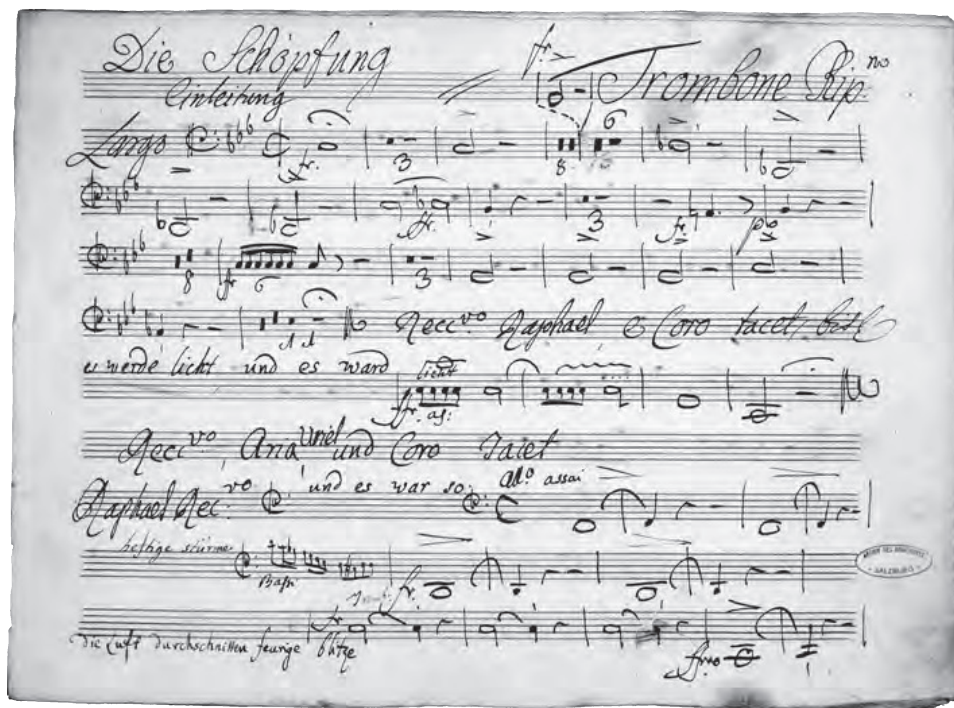 Die Schöpfung
Einleitung
Trombone Rip:no
Largo
fr.
3
8
6
fr.
3
8
6
3
1 1
Recc:vo Raphael e Coro tacet, bis
es werde licht und es ward licht
Recc:vo, Aria Uriel und Coro Tacet
Raphael Rec:vo und es war so: ad:o assai
heftige stürme
Bass
fr.
die Luft durchschnitten feurige blitze
SALZBURG